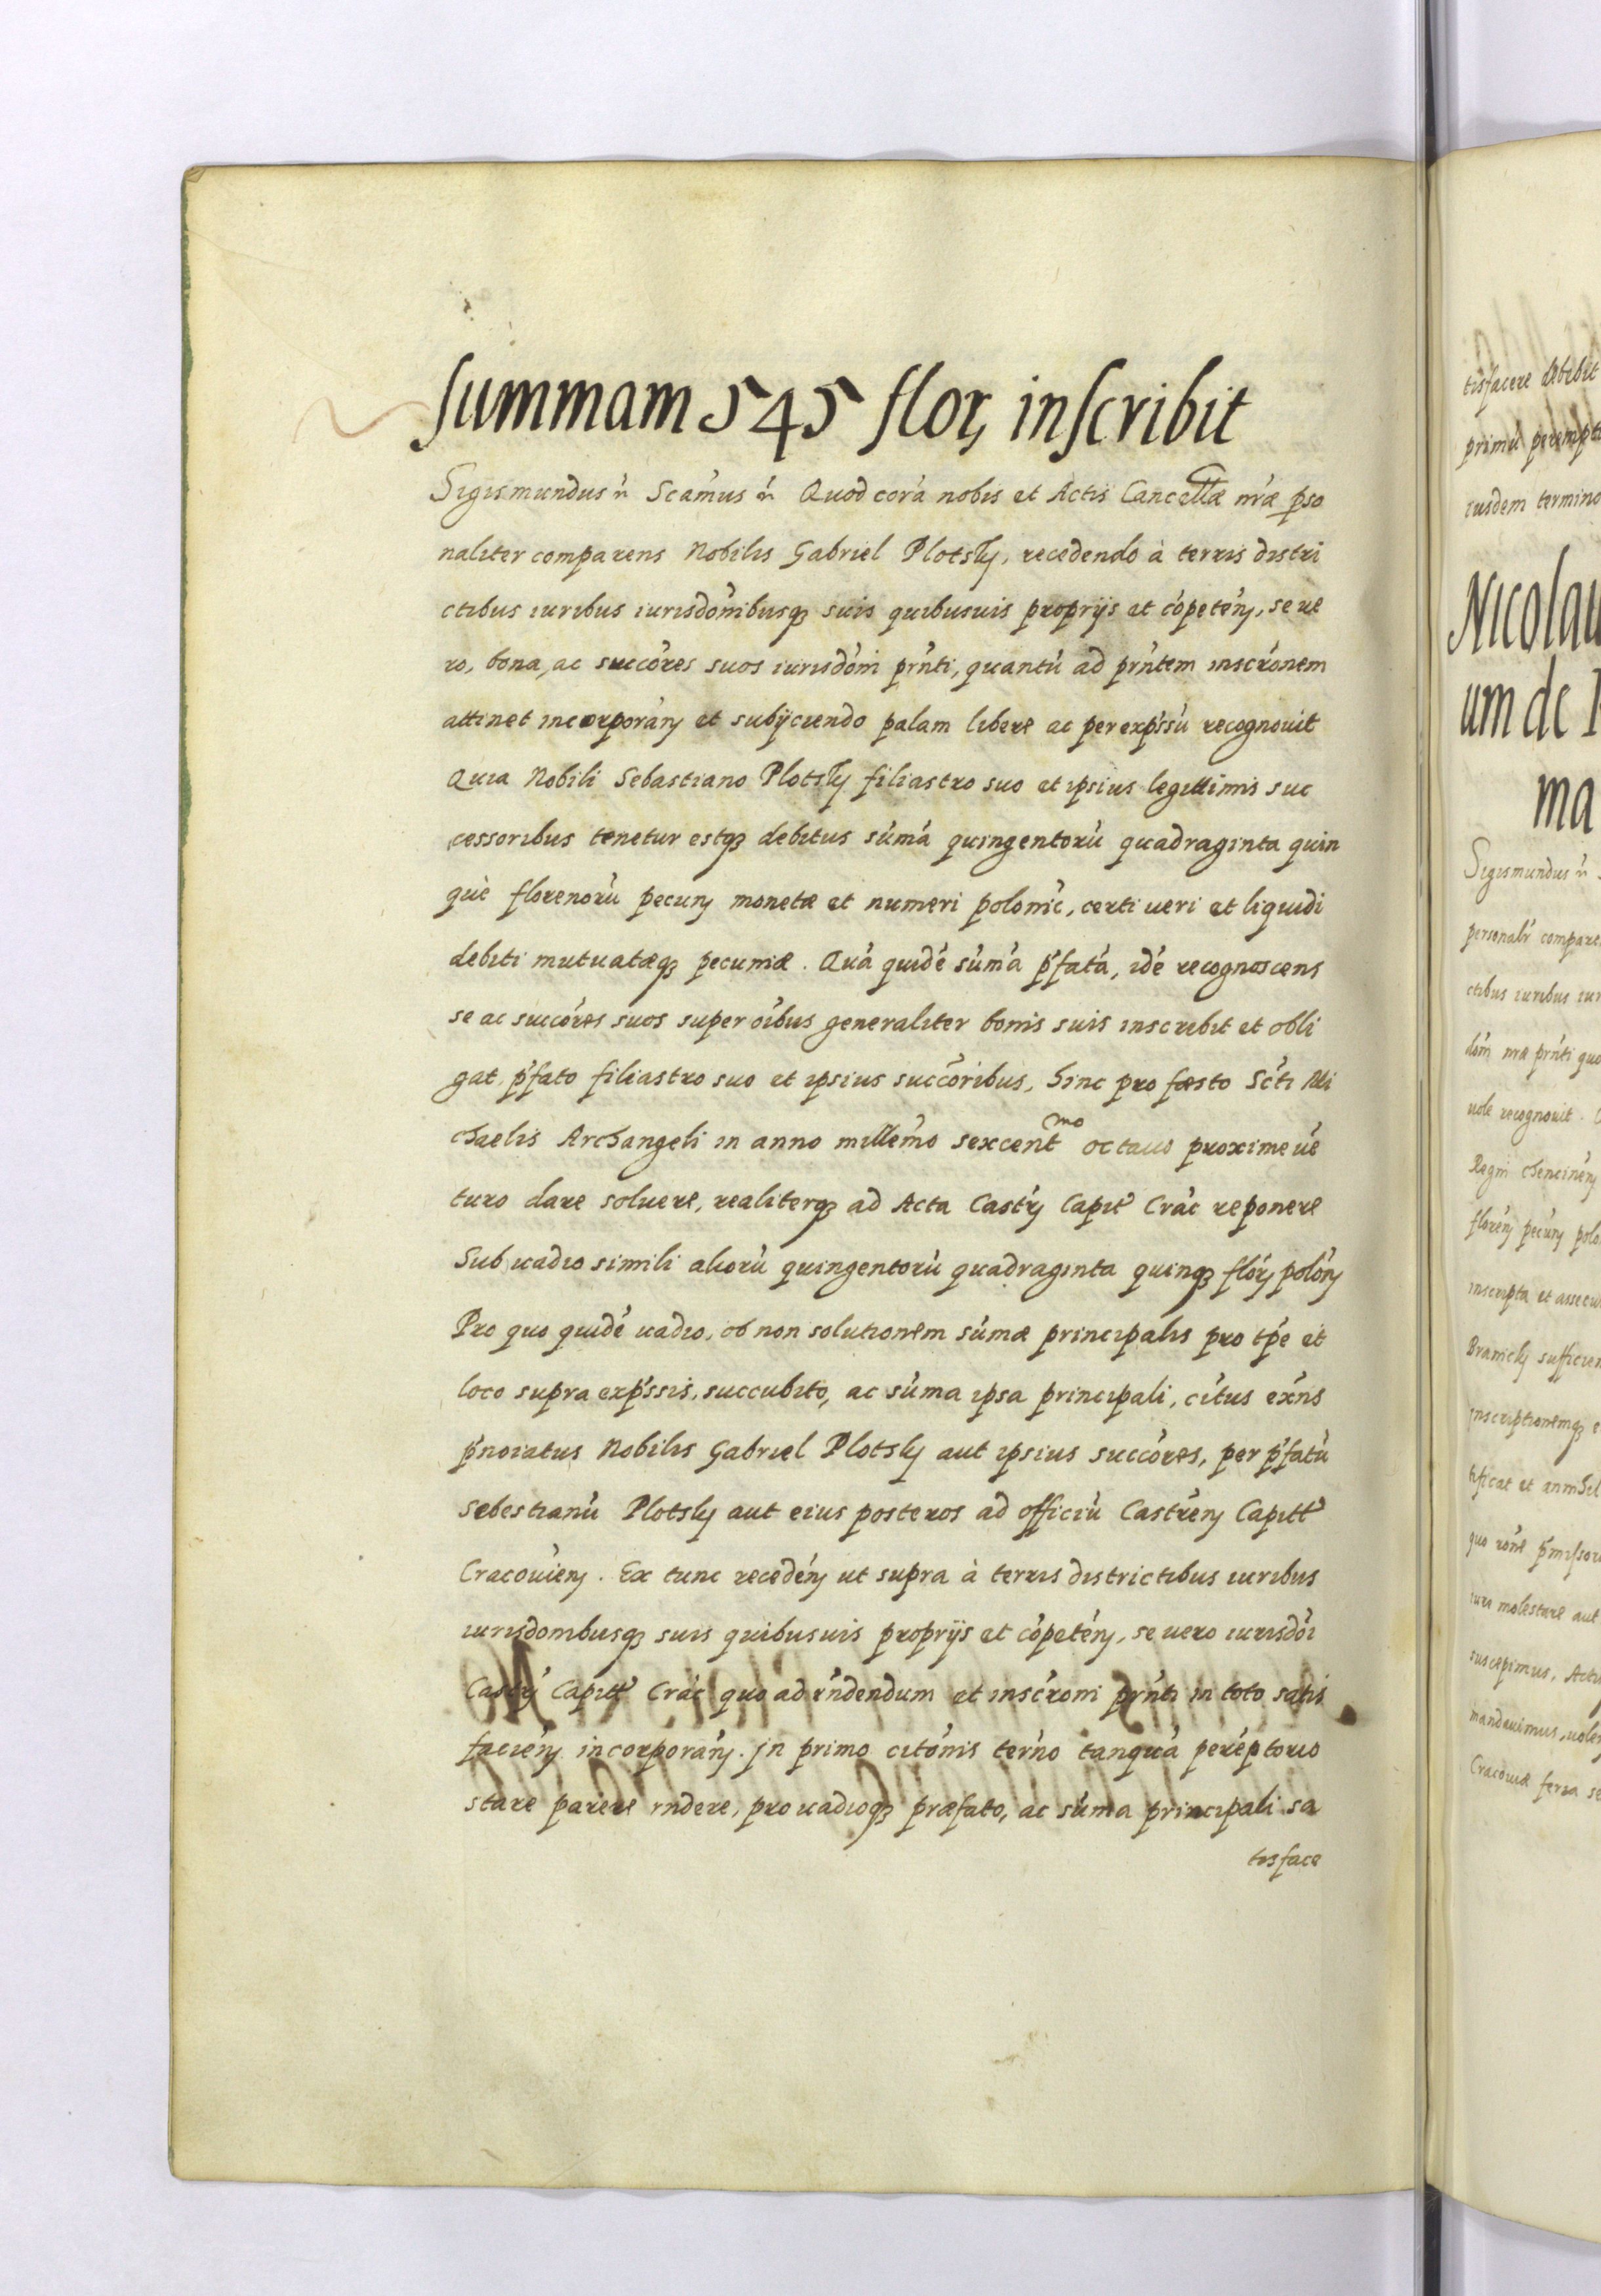 summam 545 flor, inscribit
Sigismundus ñ Scamus ñ Quod corá nobis et Actis Cancellæ nræ pso
naliter comparens Nobilis Gabriel Plotsky, recedendo à terris distri
ctibus iuribus iurisdonibusq3 suis quibusuis proprijs et cópetén, se ue
ro, bona, ac succóres suos iurisdóni prñti, quantú ad prñtem inscrónem
attinet incorporán et subijciendo palam libere ac per exṕssú recognouit
Quia Nobili Sebastiano Plotsky filiastro suo et ipsius legittimis suc
cessoribus tenetur estq3 debitus súmá quingentorú quadraginta quin
què florenorú pecuny monetæ et numeri polonić, certi ueri et liquidi
debiti mutuatæq3 pecuniæ. Quá quidé súmá ṕfatá, idé recognoscens
se ac succóres suos super oíbus generaliter bonis suis inscribit et obli
gat ṕfato filiastro suo et ipsius succóribus, hinc pro fæsto Scti Mi
chaelis Archangeli in anno millémo sexcent^mo octauo proxime ué
turo dare soluere, realiterq3 ad Acta Castrʼ Capitʼ Crać reponere
Sub uadio simili aliorú quingentorú quadraginta quinq3 flóry polóny
Pro quo quidé uadio, ob non solutionem súmæ principalis pro tṕe et
loco supra exṕssis, succubito, ac súma ipsa principali, citus exñs
ṕnoiatus Nobilis Gabriel Plotsky aut ipsius succóres, per ṕfatú
Sebestianú Plotsky aut eius posteros ad officiú Castrén Capittʼ
Cracouién. Ex tunc recedén ut supra à terris districtibus iuribus
iurisdonibusq3 suis quibusuis proprijs et cópetén, se uero iurisdói
Castrʼ Capittʼ Crać quo ad rñdendum et inscróni prñti in toto satis
facién incorporán. Jn primo citónis terḿo tanquá peréptorio
stare parere rndere, pro uadioq3 præfato, ac súma principali sa
tisface
tisfacere debebit
primú perempto
iusdem termino
Nicolau
um de
ma
Sigismundus ñ
personalr comparen
ctibus iuribus iur
dóni nræ prñti quo
uole recognouit.
Regni chencinén
florén pecuny polo
inscripta et assecu
Branicky sufficien
Jnscriptionemq3
tificat et annihil
quo róne ṕmissoru
iure molestare aut
suscepimus, Actis
mandauimus, uolen
Cracouiæ feria se